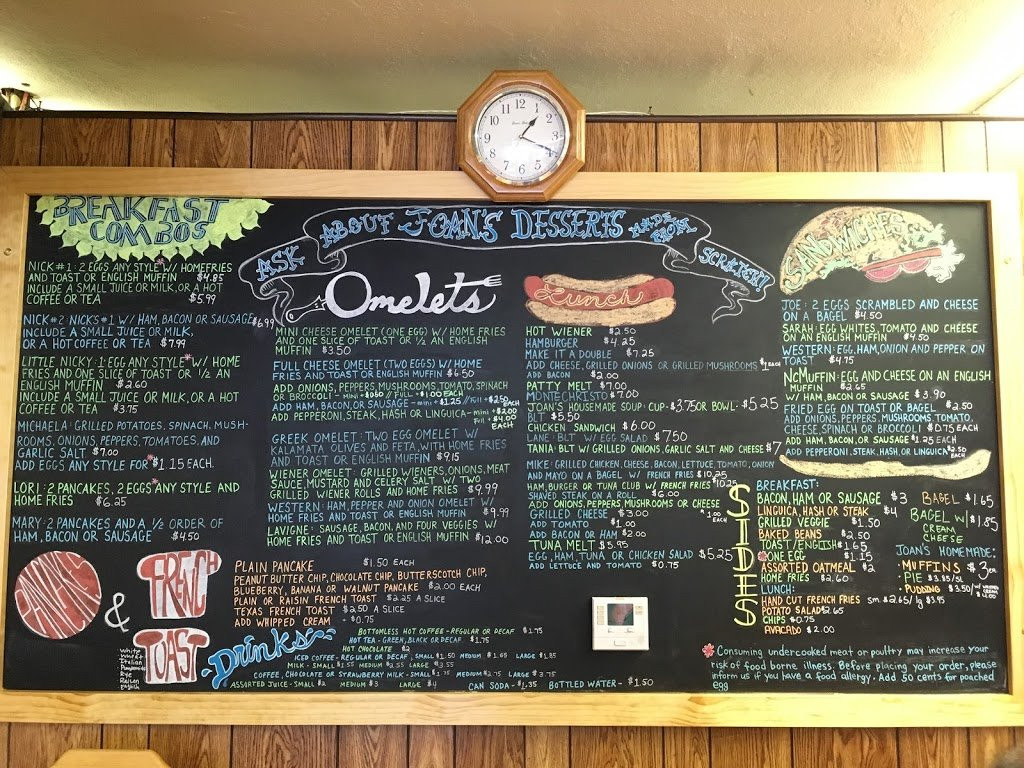 BREAKFAST
COMBOS
NICK #1: 2 EGGS ANY STYLE* W/ HOMEFRIES
AND TOAST OR ENGLISH MUFFIN $4.85
INCLUDE A SMALL JUICE OR MILK, OR A HOT
COFFEE OR TEA $5.99
NICK #2: NICKS #1 W/ HAM, BACON OR SAUSAGE $6.99
INCLUDE A SMALL JUICE OR MILK,
OR A HOT COFFEE OR TEA $7.99
LITTLE NICKY: 1 EGG ANY STYLE* W/ HOME
FRIES AND ONE SLICE OF TOAST OR 1/2 AN
ENGLISH MUFFIN $2.60
INCLUDE A SMALL JUICE OR MILK, OR A HOT
COFFEE OR TEA $3.75
MICHAELA: GRILLED POTATOES, SPINACH, MUSH-
ROOMS, ONIONS, PEPPERS, TOMATOES, AND
GARLIC SALT $7.00
ADD EGGS ANY STYLE FOR* $1.15 EACH.
LORI: 2 PANCAKES, 2 EGGS* ANY STYLE AND
HOME FRIES $6.25
MARY: 2 PANCAKES AND A 1/2 ORDER OF
HAM, BACON OR SAUSAGE $4.50
ASK ABOUT JOAN'S DESSERTS MADE FROM SCRATCH!!
Omelets
MINI CHEESE OMELET (ONE EGG) W/ HOME FRIES
AND ONE SLICE OF TOAST OR 1/2 AN ENGLISH
MUFFIN $3.50
FULL CHEESE OMELET (TWO EGGS) W/ HOME
FRIES AND TOAST OR ENGLISH MUFFIN $6.50
ADD ONIONS, PEPPERS, MUSHROOMS, TOMATO, SPINACH
OR BROCCOLI - MINI + $0.60 // FULL + $1.00 EACH
ADD HAM, BACON OR SAUSAGE - mini + $1.25 // Full + $2.50 EACH
ADD PEPPERONI, STEAK, HASH OR LINGUICA - mini + $2.00 Full + $4.00 EACH
GREEK OMELET: TWO EGG OMELET W/
KALAMATA OLIVES AND FETA, WITH HOME FRIES
AND TOAST OR ENGLISH MUFFIN $9.15
JOES OMELET: GRILLED WIENERS, ONIONS, MEAT
SAUCE, MUSTARD AND CELERY SALT W/ TWO
GRILLED WIENER ROLLS AND HOME FRIES $9.99
WESTERN: HAM, PEPPER AND ONION OMELET W/
HOME FRIES AND TOAST OR ENGLISH MUFFIN $9.99
LAVIGNE: SAUSAGE, BACON, AND FOUR VEGGIES W/
HOME FRIES AND TOAST OR ENGLISH MUFFIN $12.00
Lunch
HOT WIENER $2.50
HAMBURGER $4.25
MAKE IT A DOUBLE $7.25
ADD CHEESE, GRILLED ONIONS OR GRILLED MUSHROOMS $1 EACH
ADD BACON $2.00
PATTY MELT $7.00
MONTECHRISTO $7.00
JOAN'S HOUSEMADE SOUP: CUP - $3.75 OR BOWL: $5.25
BLT $5.50
CHICKEN SANDWICH $6.00
LANE: BLT W/ EGG SALAD $7.50
TANIA: BLT W/ GRILLED ONIONS, GARLIC SALT AND CHEESE $7
MIKE: GRILLED CHICKEN, CHEESE, BACON, LETTUCE, TOMATO, ONION
AND MAYO ON A BAGEL W/ FRENCH FRIES $10.25
HAM, BURGER OR TUNA CLUB W/ FRENCH FRIES $10.25
SHAVED STEAK ON A ROLL $6.00
ADD ONIONS, PEPPERS, MUSHROOMS OR CHEESE $1.00 EACH
GRILLED CHEESE $3.00
ADD TOMATO $1.00
ADD BACON OR HAM $2.00
TUNA MELT $5.95
EGG, HAM, TUNA OR CHICKEN SALAD $5.25
ADD LETTUCE AND TOMATO $0.75
SANDWICHES
JOE: 2 EGGS SCRAMBLED AND CHEESE
ON A BAGEL $4.50
SARAH: EGG WHITES, TOMATO AND CHEESE
ON AN ENGLISH MUFFIN $4.50
WESTERN: EGG, HAM, ONION AND PEPPER ON
TOAST $4.75
NCMUFFIN: EGG AND CHEESE ON AN ENGLISH
MUFFIN $2.65
W/ HAM, BACON OR SAUSAGE $3.90
FRIED EGG ON TOAST OR BAGEL $2.50
ADD ONIONS, PEPPERS, MUSHROOMS, TOMATO,
CHEESE, SPINACH OR BROCCOLI $0.75 EACH
ADD HAM, BACON, OR SAUSAGE $1.25 EACH
ADD PEPPERONI, STEAK, HASH, OR LINGUICA $2.50 EACH
SIDES
BREAKFAST:
BACON, HAM OR SAUSAGE $3
LINGUICA, HASH OR STEAK $4
GRILLED VEGGIE $1.50
BAKED BEANS $2.50
TOAST/ENGLISH $1.65
*ONE EGG $1.15
ASSORTED OATMEAL $2
HOME FRIES $2.60
LUNCH:
HAND CUT FRENCH FRIES sm $2.65/lg $3.95
POTATO SALAD $2.65
CHIPS $0.75
AVACADO $2.00
BAGEL $1.65
BAGEL W/ CREAM CHEESE $1.85
JOAN'S HOMEMADE:
· MUFFINS $3 ea
· PIE $3.95/SL
· PUDDING $3.50/ W/ WHIPPED CREAM $4.00
PANCAKES
&
FRENCH
TOAST
White
Wheat
Italian
Rye
Raisin
English
PLAIN PANCAKE $1.50 EACH
PEANUT BUTTER CHIP, CHOCOLATE CHIP, BUTTERSCOTCH CHIP,
BLUEBERRY, BANANA OR WALNUT PANCAKE $2.00 EACH
PLAIN OR RAISIN FRENCH TOAST $2.25 A SLICE
TEXAS FRENCH TOAST $2.50 A SLICE
ADD WHIPPED CREAM - $0.75
Drinks
BOTTOMLESS HOT COFFEE - REGULAR OR DECAF $1.75
HOT TEA - GREEN, BLACK OR DECAF $1.75
HOT CHOCOLATE $2
ICED COFFEE - REGULAR OR DECAF, SMALL $1.50 MEDIUM $1.65 LARGE $1.85
MILK - SMALL $1.55 MEDIUM $2.55 LARGE $3.55
COFFEE, CHOCOLATE OR STRAWBERRY MILK - SMALL $1.75 MEDIUM $2.75 LARGE $3.75
ASSORTED JUICE - SMALL $2 MEDIUM $3 LARGE $4 CAN SODA - $1.35 BOTTLED WATER - $1.50
* Consuming undercooked meat or poultry may increase your
risk of food borne illness. Before placing your order, please
inform us if you have a food allergy. Add 50 cents for poached
egg
12
1
2
3
4
5
6
7
8
9
10
11